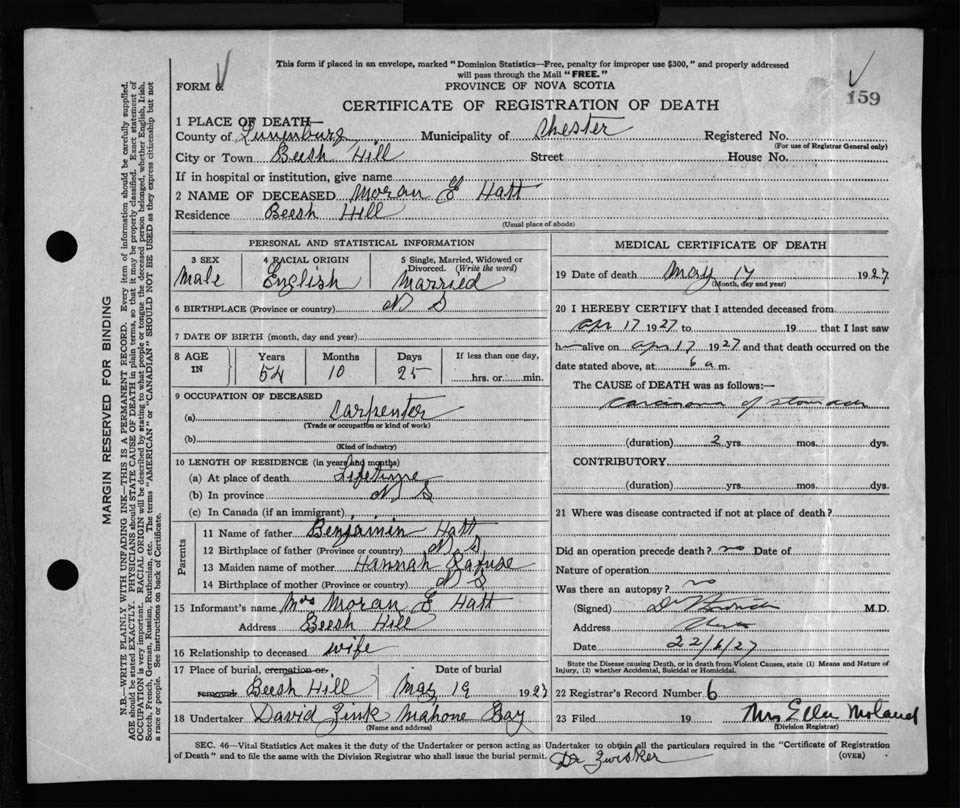 This form if placed in an envelope, marked "Dominion Statistics—Free, penalty for improper use $300," and properly addressed
will pass through the Mail "FREE."
FORM 6. PROVINCE OF NOVA SCOTIA
159
CERTIFICATE OF REGISTRATION OF DEATH
1 PLACE OF DEATH—
County of Lunenburg Municipality of Chester Registered No.
(For use of Registrar General only)
City or Town Beesh Hill Street House No.
If in hospital or institution, give name
2 NAME OF DECEASED Moran E Hatt
Residence Beesh Hill
(Usual place of abode)
PERSONAL AND STATISTICAL INFORMATION
3 SEX 4 RACIAL ORIGIN 5 Single, Married, Widowed or
Divorced. (Write the word)
Male English Married
6 BIRTHPLACE (Province or country) N S
7 DATE OF BIRTH (month, day and year)
8 AGE IN Years Months Days If less than one day,
54 10 25 hrs. or min.
9 OCCUPATION OF DECEASED
(a) Carpenter
(Trade or occupation or kind of work)
(b)
(Kind of industry)
10 LENGTH OF RESIDENCE (in years and months)
(a) At place of death Lifetime
(b) In province N S
(c) In Canada (if an immigrant)
Parents
11 Name of father Benjamin Hatt
12 Birthplace of father (Province or country) N S
13 Maiden name of mother Hannah Rafuse
14 Birthplace of mother (Province or country) N S
15 Informant's name Mrs Moran E Hatt
Address Beesh Hill
16 Relationship to deceased wife
17 Place of burial, cremation or Date of burial
removal Beesh Hill May 19 1927
18 Undertaker David Zink Mahone Bay
(Name and address)
MEDICAL CERTIFICATE OF DEATH
19 Date of death May 17 1927
(Month, day and year)
20 I HEREBY CERTIFY that I attended deceased from
Apr 17 1927 to 19 that I last saw
h alive on Apr 17 1927 and that death occurred on the
date stated above, at 6 a m.
The CAUSE of DEATH was as follows:—
Carcinoma of stomach
(duration) 2 yrs. mos. dys.
CONTRIBUTORY
(duration) yrs. mos. dys.
21 Where was disease contracted if not at place of death?
Did an operation precede death? no Date of
Nature of operation
Was there an autopsy? no
(Signed) M.D.
Address Chester
Date 22/6/27
State the Disease causing Death, or in death from Violent Causes, state (1) Means and Nature of
Injury, (2) whether Accidental, Suicidal or Homicidal.
22 Registrar's Record Number 6
23 Filed 19 Mrs Ella
(Division Registrar)
SEC. 46—Vital Statistics Act makes it the duty of the Undertaker or person acting as Undertaker to obtain all the particulars required in the "Certificate of Registration
of Death" and to file the same with the Division Registrar who shall issue the burial permit. (OVER)
Dr Zwicker
MARGIN RESERVED FOR BINDING
N.B.—WRITE PLAINLY WITH UNFADING INK—THIS IS A PERMANENT RECORD. Every item of information should be carefully supplied.
AGE should be stated EXACTLY. PHYSICIANS should STATE CAUSE OF DEATH in plain terms, so that it may be properly classified. Exact statement of
OCCUPATION is very important. RACIAL ORIGIN will be described by stating to what people or tongue the deceased person belonged, whether English, Irish,
Scotch, French, German, Russian, Ruthenian, etc. The terms "AMERICAN" or "CANADIAN" SHOULD NOT BE USED as they express citizenship but not
a race or people. See instructions on back of Certificate.